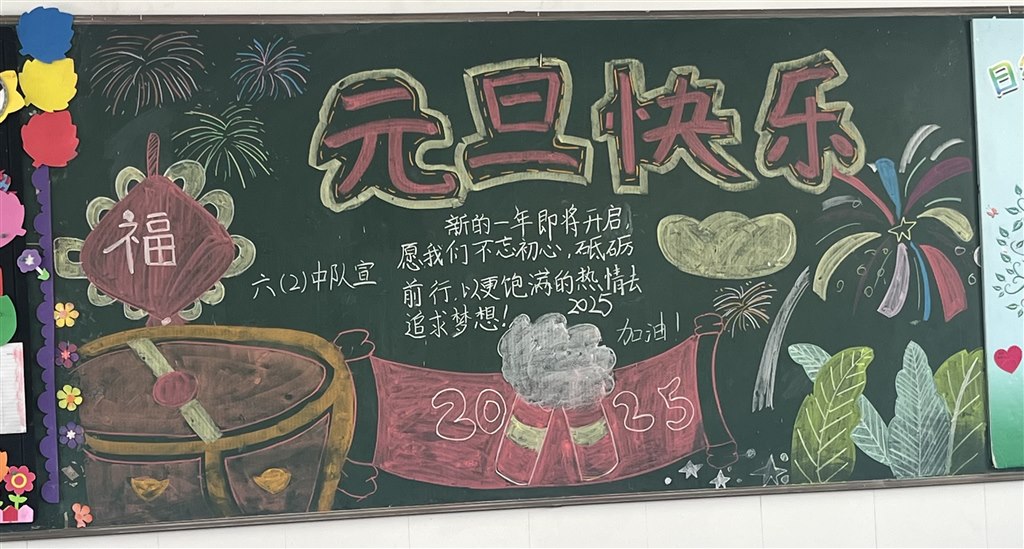 元旦快乐
福
新的一年即将开启,
愿我们不忘初心,砥砺
前行,以更饱满的热情去
追求梦想!
2025
加油!
六(2)中队宣
2025